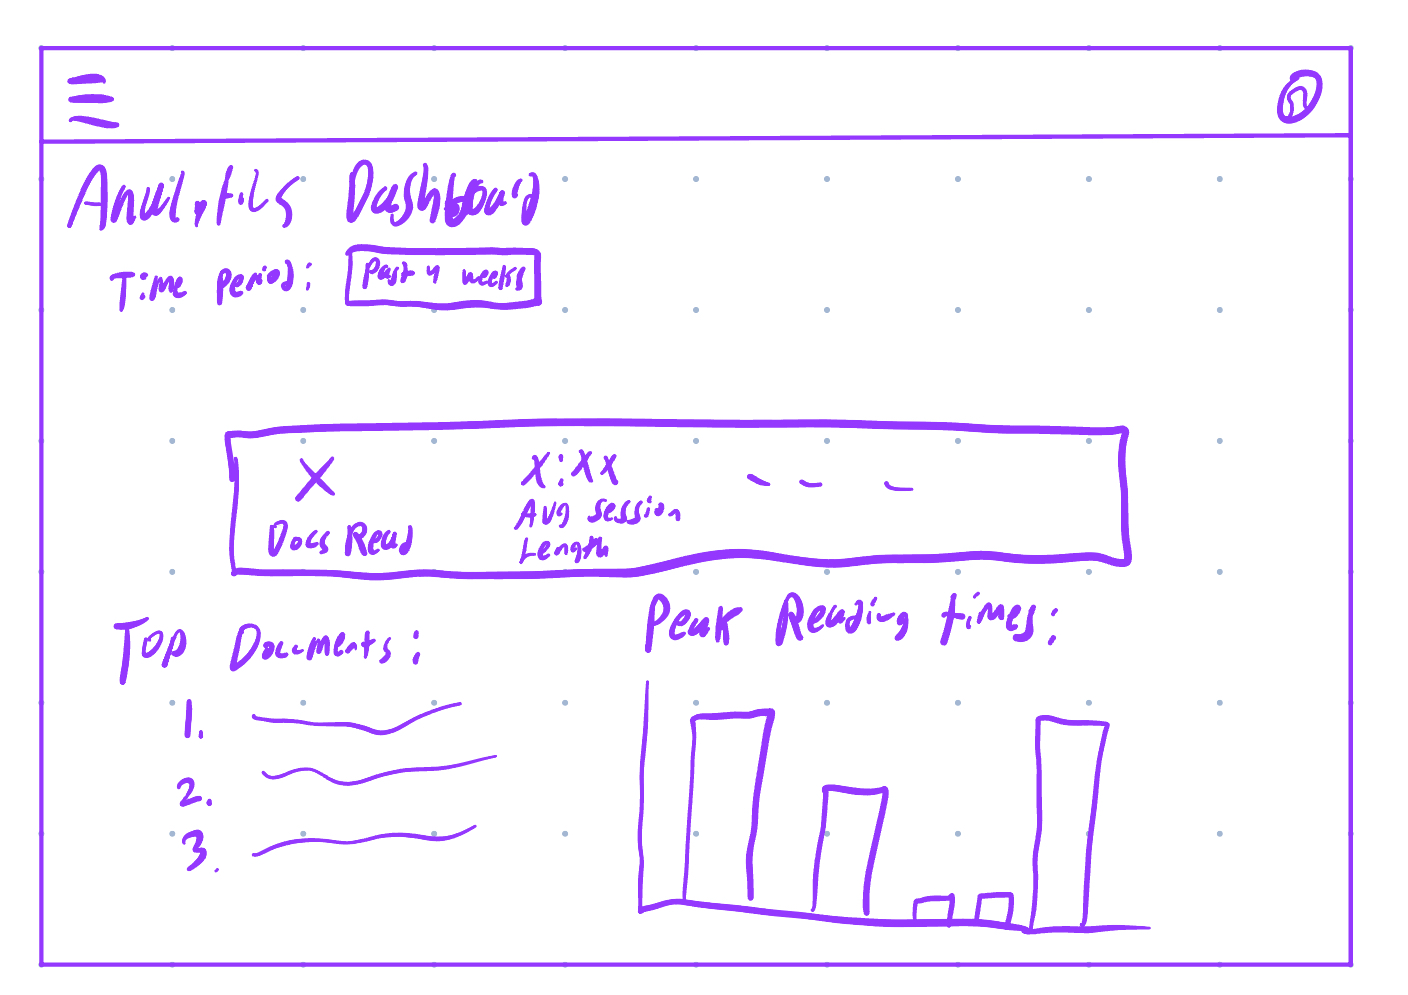 Analytics Dashboard
Time Period: Past 4 weeks
X
Docs Read
X:XX
Avg session
Length
- - -
Top Documents:
1.
2.
3.
Peak Reading times: